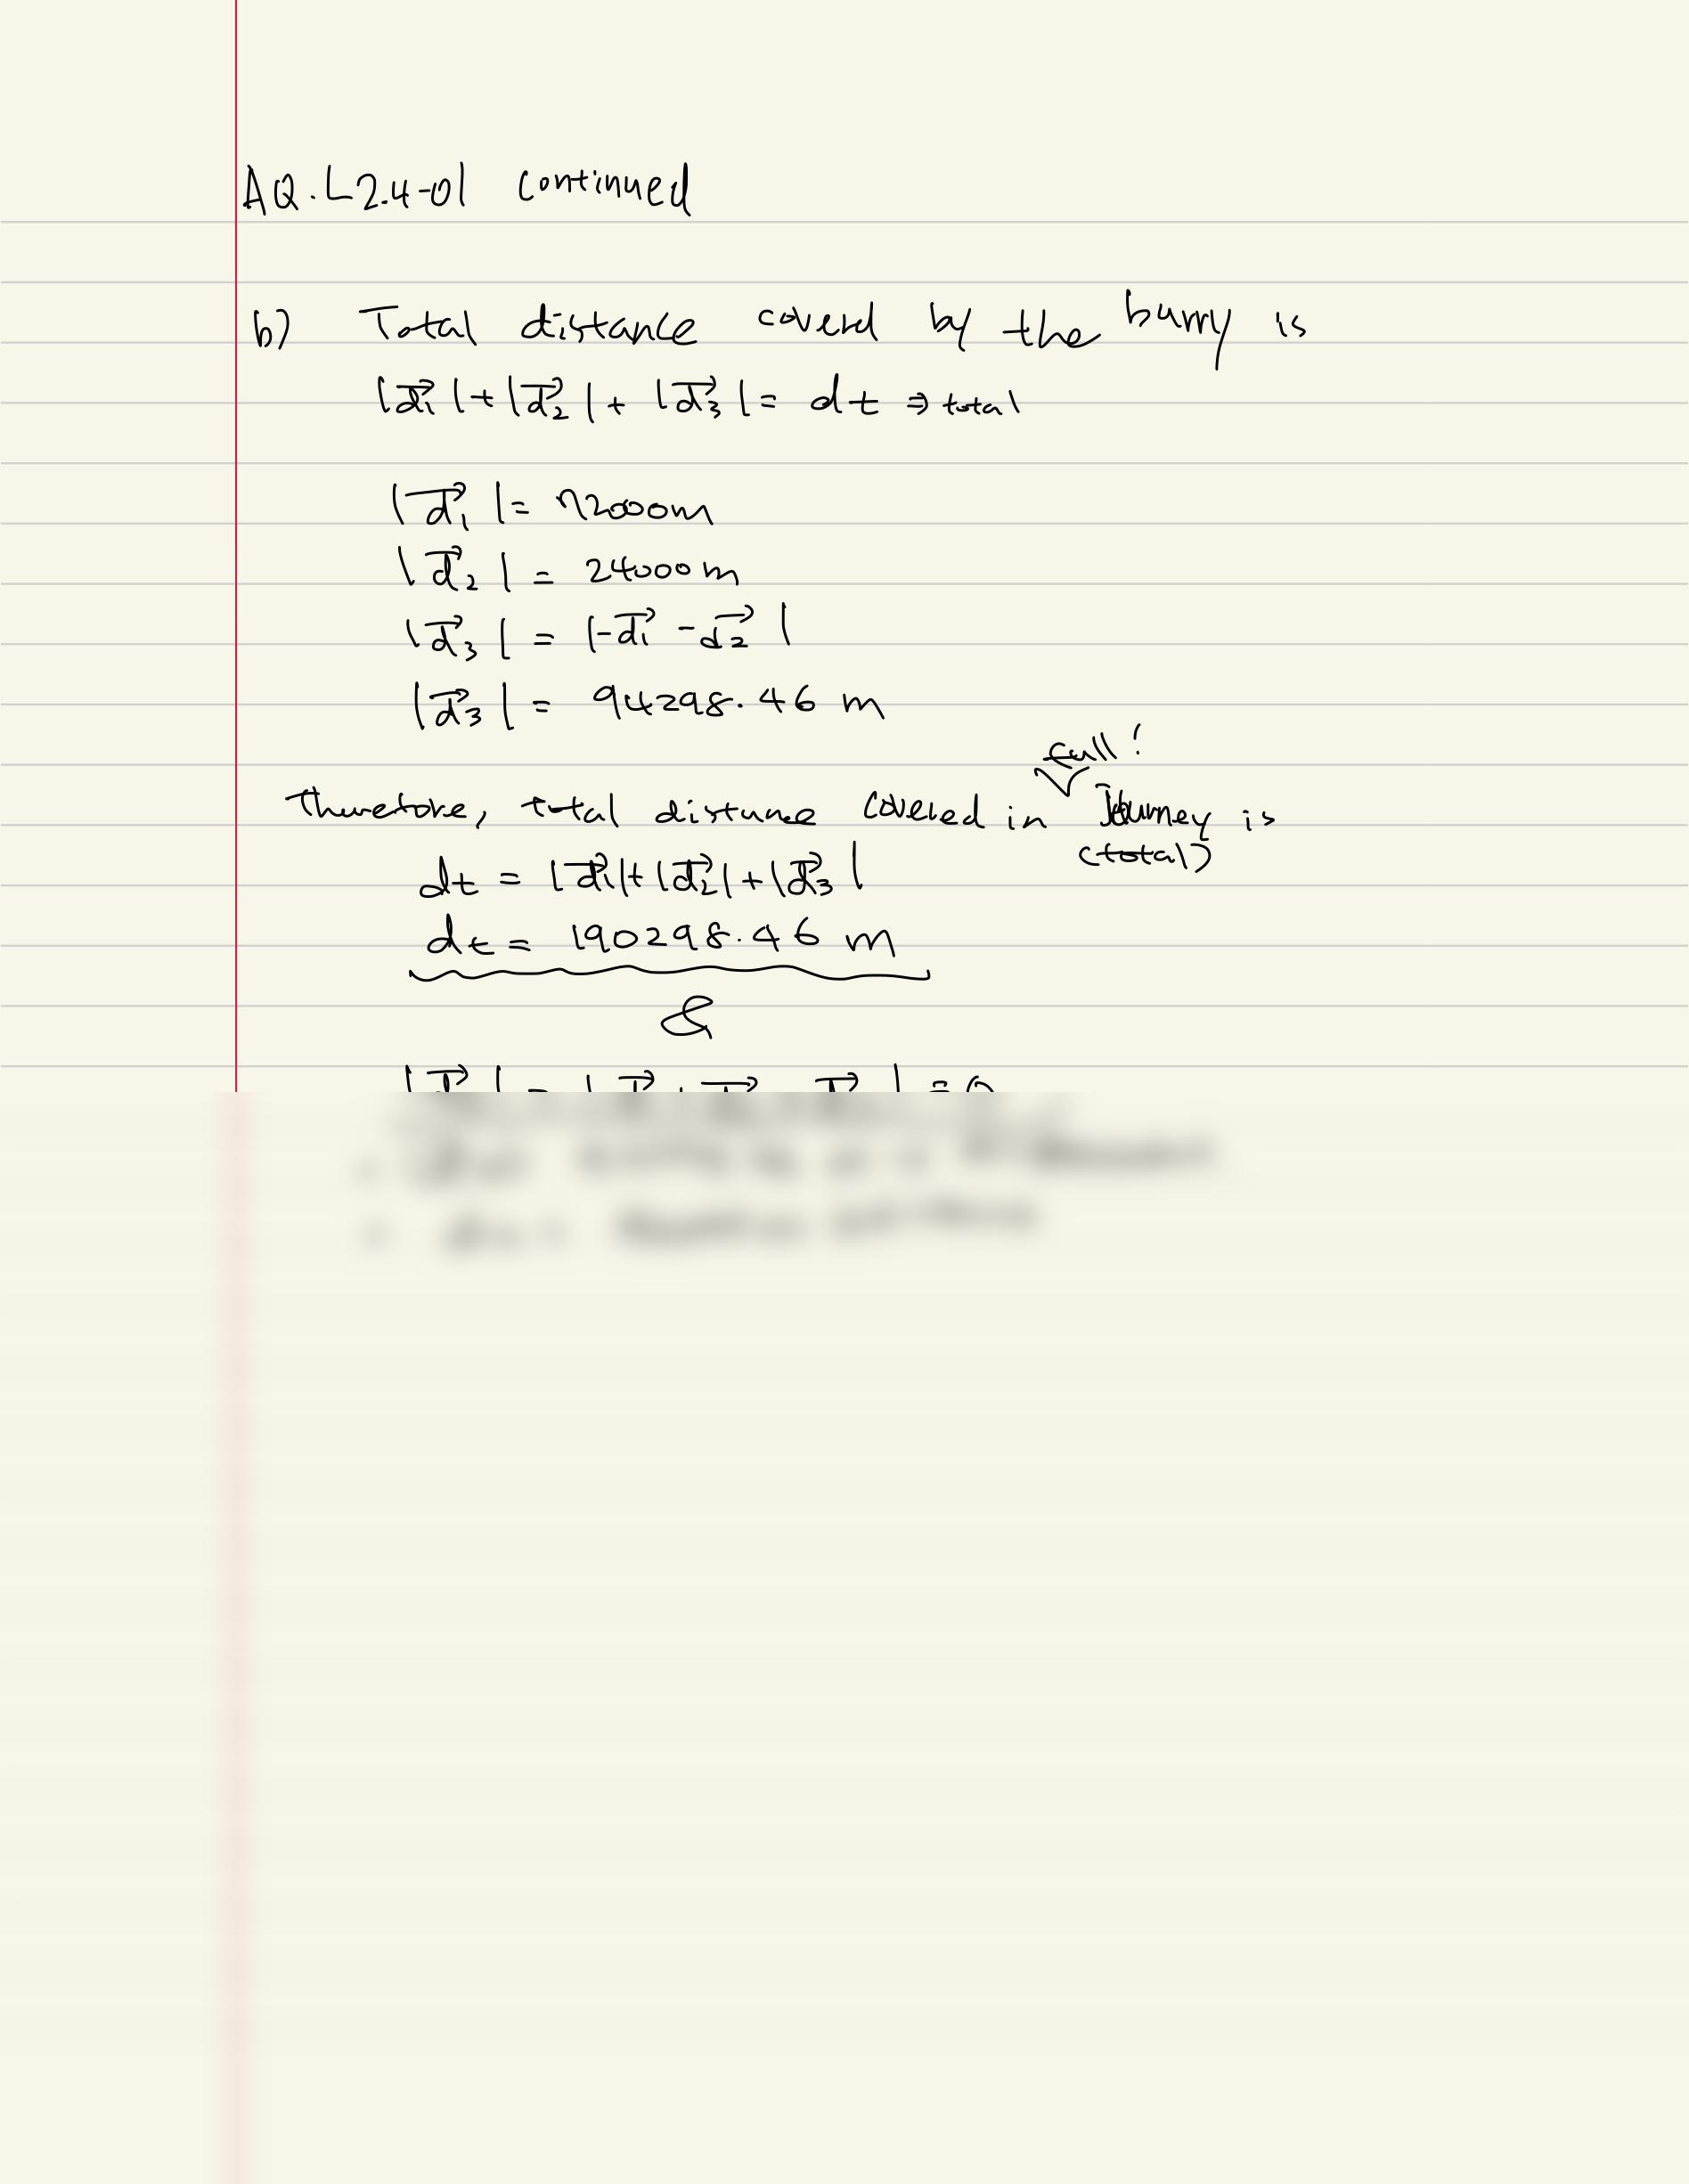 AQ.L2.4-01 continued
b) Total distance coverd by the burry is
|d⃗₁| + |d⃗₂| + |d⃗₃| = dt ⇒ total
|d⃗₁| = 72000m
|d⃗₂| = 24000m
|d⃗₃| = |-d⃗₁ - d⃗₂|
|d⃗₃| = 94298.46 m
full!
Therefore, total distance covered in Journey is
(total)
dt = |d⃗₁| + |d⃗₂| + |d⃗₃|
dt = 190298.46 m
&